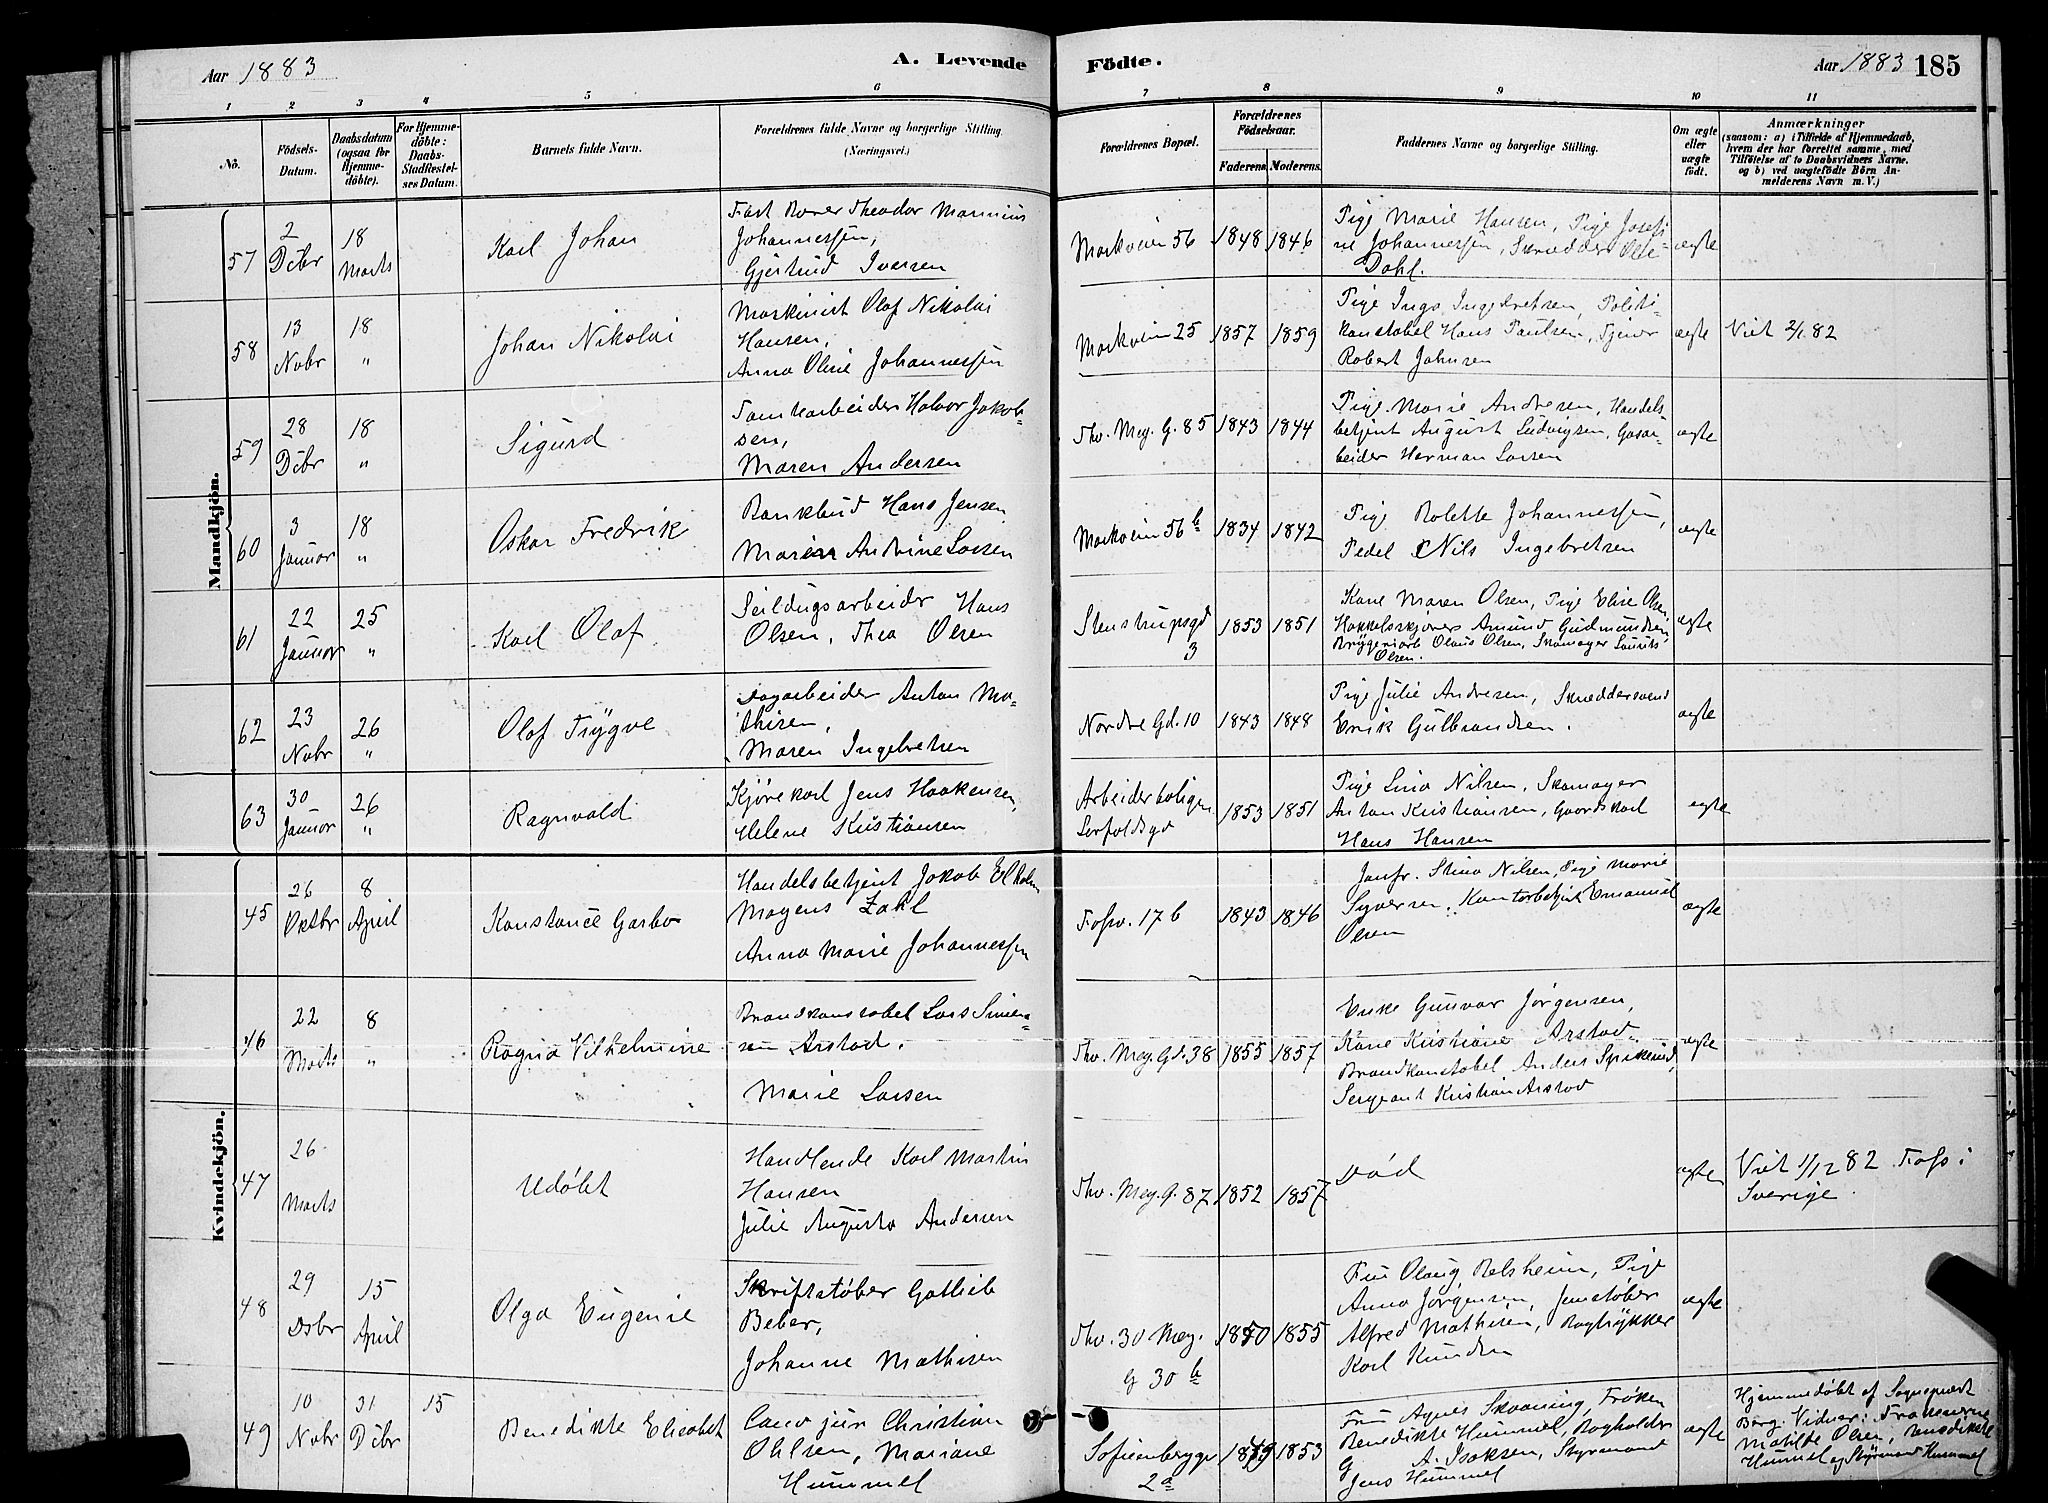 Aar 1883
A. Levende Födte.
Aar 1883 185
1 2 3 4 5 6 7 8 9 10 11
No.
Födsels-Datum.
Daabsdatum (ogsaa for Hjemmedöbte).
For Hjemmedöbte: Daabs-Stadfæstelses Datum.
Barnets fulde Navn.
Forældrenes fulde Navne og borgerlige Stilling.
(Næringsvei.)
Forældrenes Bopæl.
Forældrenes Födselsaar.
Faderens. Moderens.
Faddernes Navne og borgerlige Stilling.
Om ægte eller uægte födt.
Anmærkninger
(saasom: a) i Tilfælde af Hjemmedaab, hvem der har forrettet samme, med Tilföielse af to Daabsvidners Navne. og b) ved uægtefödte Börn Anmelderens Navn m. V.)
Mandkjön.
57 2 Dcbr 18 Marts Karl Johan
Theodor Marinius
Johannessen,
Gjertrud Iversen
Markveien 56 1848 1846
Pige Marie Hansen, Pige Josefi
ne Johannessen, Skrædder Ole
Dahl.
ægte
58 13 Nobr 18 " Johan Nikolai
Maskinist Olaf Nikolai
Hansen,
Anna Oline Johannessen
Markveien 25 1857 1859
Pige Inga Ingebretsen, Politi-
konstabel Hans Paulsen, Tjener
Robert Johnsen
ægte Viet 2/1 82
59 28 Dcbr 18 " Sigurd
Tomtearbeider Halvor Jakob-
sen,
Maren Andersen
Thv. Mey. G. 85 1843 1844
Pige Marie Andresen, Handels
betjent August Ludvigsen, Gasar-
beider Herman Larsen
ægte
60 3 Januar 18 " Oskar Fredrik
Bankbud Hans Jensen
Maren Andrine Larsen
Markveien 56 b 1834 1842
Pige Rolette Johannessen,
Pedel Nils Ingebretsen
ægte
61 22 Januar 25 " Karl Olaf
Seildugsarbeider Hans
Olsen, Thea Olsen
Stenstrupsgd
3
1853 1851
Kone Maren Olsen, Pige Elise Olsen,
Amund Gudmundsen,
Bryggeriarb Olaus Olsen, Skomager Laurits
Olsen.
ægte
62 23 Nobr 26 " Olaf Trygve
Dagarbeider Anton Ma-
thisen,
Maren Ingebretsen
Nordre Gd. 10 1843 1848
Pige Julie Andresen, Skræddersvend
Erik Gulbrandsen.
ægte
63 30 Januar 26 " Ragnvald
Kjørekarl Jens Haakensen,
Helene Kristiansen
Arbeiderboligen
1853 1851
Pige Lina Nilsen, Skomager
Anton Kristiansen, Gaardskarl
Hans Hansen
ægte
Kvindekjön.
45 26 Oktbr 8 April Konstance Garbo
Handelsbetjent Jakob
Mogens Zahl
Anna Marie Johannessen
Fosv. 17 b 1843 1846
Jomfr. Stina Nilsen, Pige Marie
Syversen, Kontorbetjent Emanuel
Olsen
ægte
46 22 Marts 8 " Ragna Vilhelmine
Brandkonstabel Lars Simen-
sen Arstad.
Marie Larsen
Thv. Mey. Gd. 38 1855 1857
Enke Gunvor Jørgensen,
Kone Kristiane Arstad
Brandkonstabel Anders
Sergeant Kristian Arstad
ægte
47 26 Marts Udøbt
Handlende Karl Martin
Hansen
Julie Augusta Andersen
Thv. Mey. G. 87 1852 1857
Død
ægte
Viet 1/12 82 Fofs i
Sverige.
48 29 Dsbr 15 April Olga Eugenie
Skriftstøber Gotlieb
Beber,
Johanne Mathisen
Thv. 30 Mey.
G 30 b
1850 1855
Fru Olaug Relsheim, Pige
Anna Jørgensen, Jernstøber
Alfred Mathisen, Bogtrykker
Karl Knudsen
ægte
49 10 Nobr 31 Dcbr 15 Benedikte Elisabet
Cand jur Christian
Ohlsen, Mariane
Hummel
Sofienberggd
2a
1849 1853
Fru Agnes Skaaning, Frøken
Benedikte Hummel, Bogholder
G A. Isaksen, Styrmand
Jens Hummel
ægte
Hjemmedøbt af Sogneprest
Berg. Vidner: Frøknerne
Matilde Olsen, Benedikte
Hummel og Styrmand Hummel